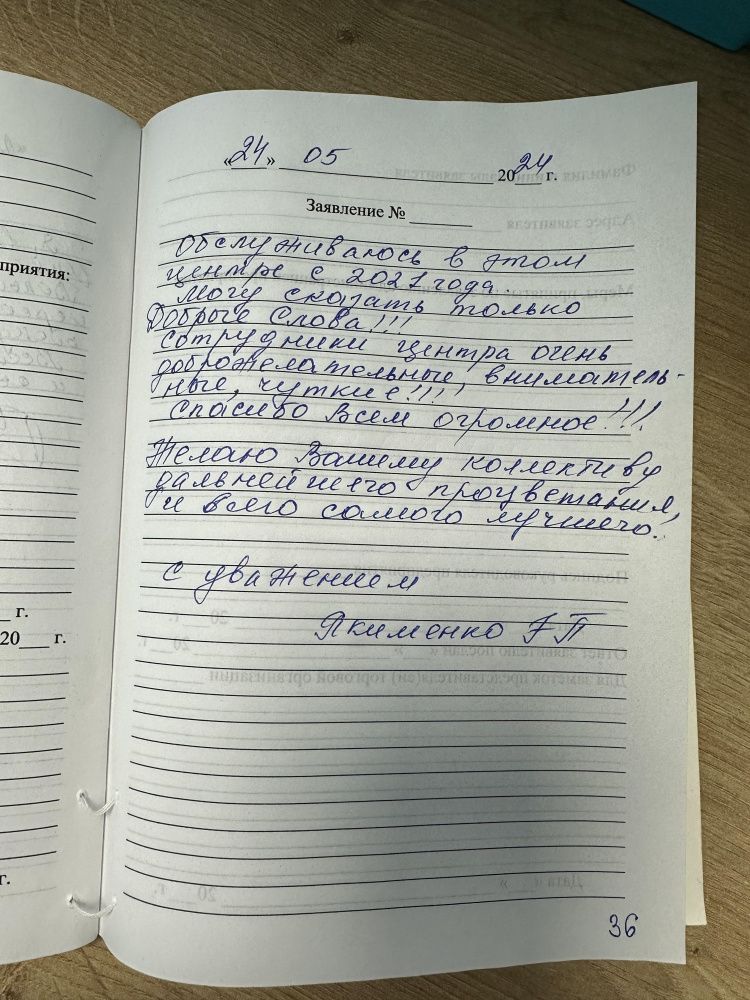 «24» 05 2024 г.
Заявление №
Обслуживаюсь в этом
центре с 2021 года.
Могу сказать только
Добрые Слова!!!
сотрудники центра очень
доброжелательные, вниматель-
ные, чуткие!!!!
Спасибо Всем огромное!!!!
Желаю Вашему коллективу
дальнейшего процветания,
и всего самого лучшего!
С уважением
Якименко
36
приятия:
г.
20 г.
г.